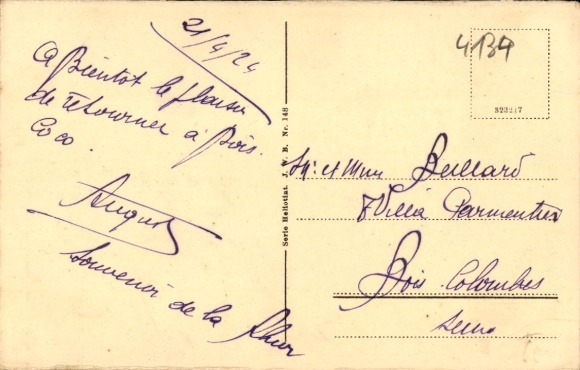 21/4/24
A Bientot le plaisir
de retourner à Bois.
Coco.
August
Souvenir de la Rhur
Serie Heliotint. J. W. B. Nr. 148
4134
S23217
Mr. et Mme Bullard
8 Villa Parmentier
Bois-Colombes
Seine